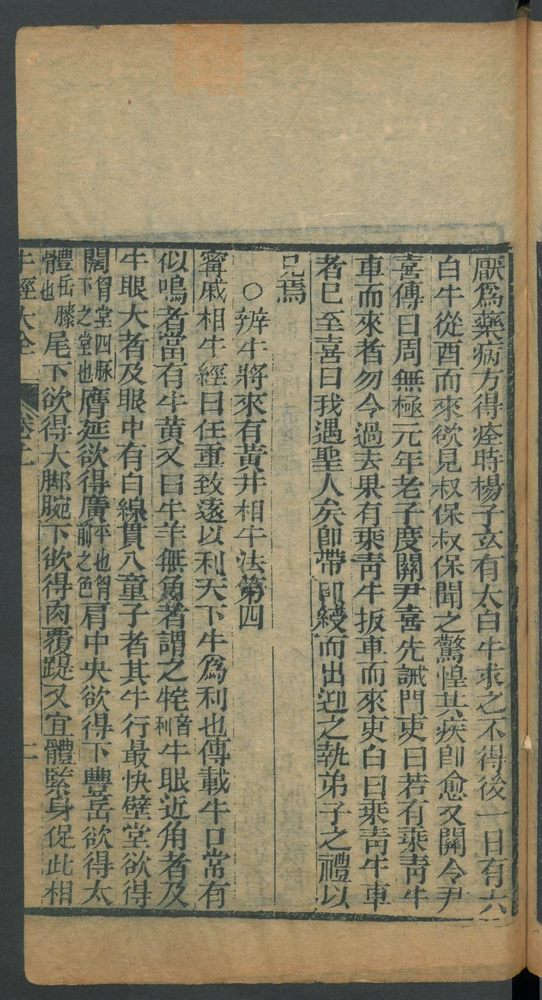 厭爲藥病方得痊時楊子玄有大白牛求之不得後一日有六
白牛從西而來欲見叔保叔保聞之驚惶其疾卽愈又關令尹
喜傳曰周無極元年老子度關尹喜先誡門吏曰若有乘靑牛
車而來者勿令過去果有乘靑牛扳車而來吏白曰乘靑牛車
者已至喜曰我遇聖人矣卽帶印綬而出迎之執弟子之禮以
見焉
○辨牛將來有黃并相牛法第四
甯戚相牛經曰任重致遠以利天下牛爲利也傳載牛口常有
似鳴者當有牛黃又曰牛羊無角者謂之㸹音利牛眼近角者及
牛眼大者及眼中有白線貫八童子者其牛行最快壁堂欲得
闊胷堂四脉下之堂也膺延欲得廣平也胷前之色肩中央欲得下豐岳欲得太
體岳膝也尾下欲得大脚腕下欲得肉覆踶又宜體緊身促此相
牛經大全 卷之 二